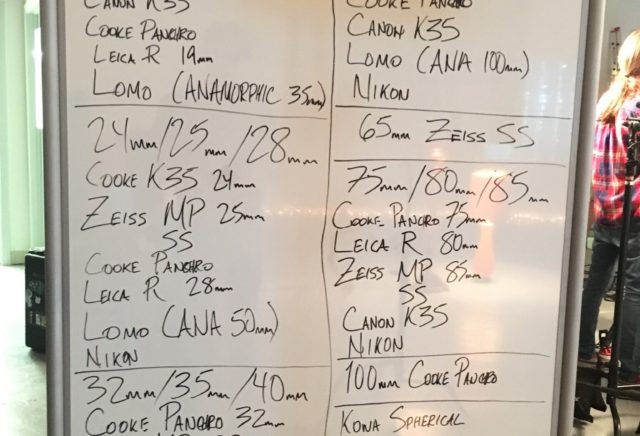 CANON K35
COOKE PANCHRO
LEICA R 19mm
LOMO (ANAMORPHIC 35mm)
24mm/25mm/28mm
COOKE K35 24mm
ZEISS MP 25mm
SS
COOKE PANCHRO
LEICA R 28mm
LOMO (ANA 50mm)
NIKON
32mm/35mm/40mm
COOKE PANCHRO 32mm
COOKE PANCHRO
CANON K35
LOMO (ANA 100mm)
NIKON
65mm ZEISS SS
75mm/80mm/85mm
COOKE PANCHRO 75mm
LEICA R 80mm
ZEISS MP 85mm
SS
CANON K35
NIKON
100mm COOKE PANCHRO
KOWA SPHERICAL